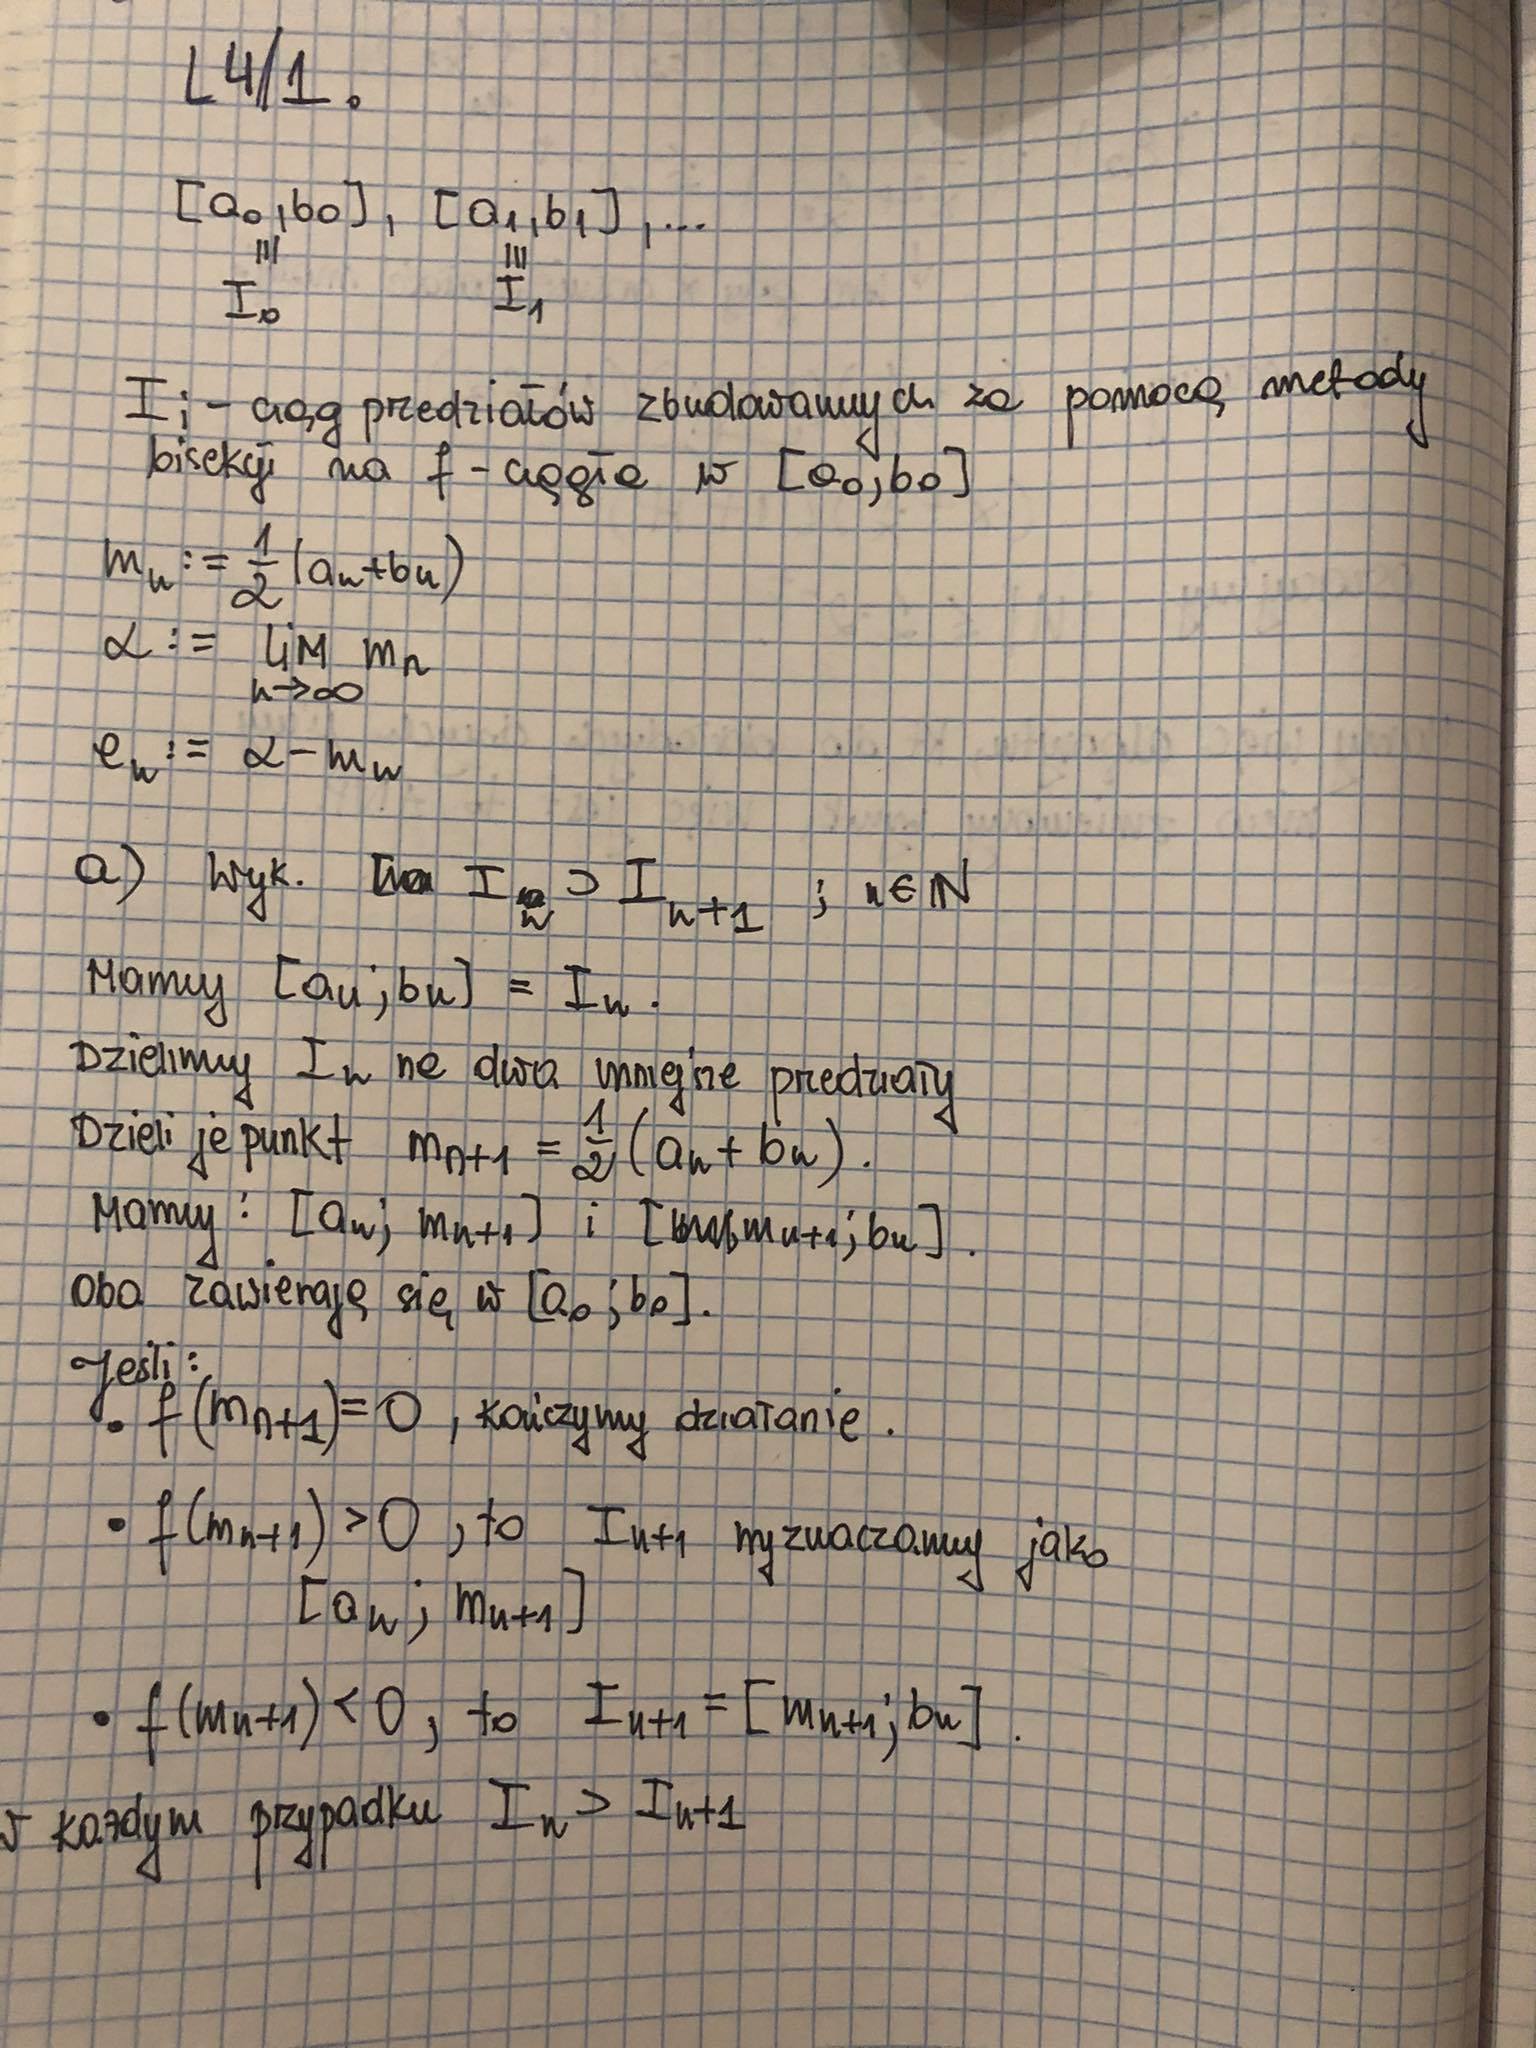 L4/1.
[a₀,b₀], [a₁,b₁],...
≡ ≡
I₀ I₁
Iᵢ - ciąg przedziałów zbudowanych za pomocą metody
bisekcji na f - ciągła w [a₀;b₀]
mₙ := 1/2 (aₙ+bₙ)
α := lim mₙ
n→∞
eₙ := α - mₙ
a) Wyk. Iₙ ⊃ Iₙ₊₁ ; n∈ℕ
Mamy [aₙ;bₙ] = Iₙ.
Dzielimy Iₙ na dwa mniejsze przedziały
Dzieli je punkt mₙ₊₁ = 1/2 (aₙ + bₙ).
Mamy: [aₙ; mₙ₊₁] i [mₙ₊₁; bₙ].
Oba zawierają się w [a₀;b₀].
Jeśli:
• f(mₙ₊₁)=0, kończymy działanie.
• f(mₙ₊₁) > 0, to Iₙ₊₁ wyznaczamy jako
[aₙ; mₙ₊₁]
• f(mₙ₊₁) < 0, to Iₙ₊₁ = [mₙ₊₁; bₙ].
W każdym przypadku Iₙ ⊃ Iₙ₊₁